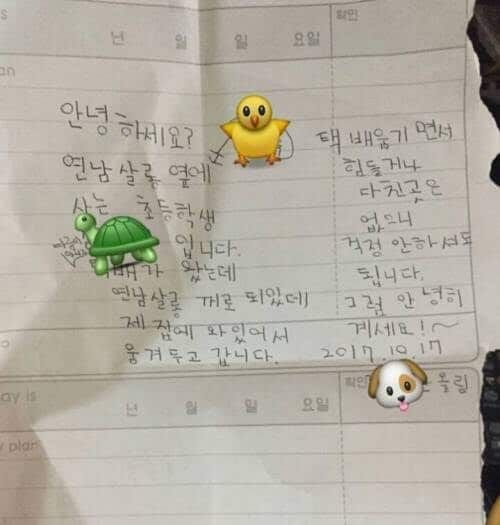 년 월 일 요일 확인
안녕하세요?
연남살롱 옆에
사는 초등학생
입니다.
배가 왔는데
연남살롱 꺼로 되있데
제 집에 와있어서
웅겨두고 갑니다.
택배웅기면서
힘들거나
다친곳은
없으니
걱정 안하셔도
됩니다.
그럼 안녕히
계세요!~
2017.10.17
올림
ay is
년 월 일 요일 확인
plan